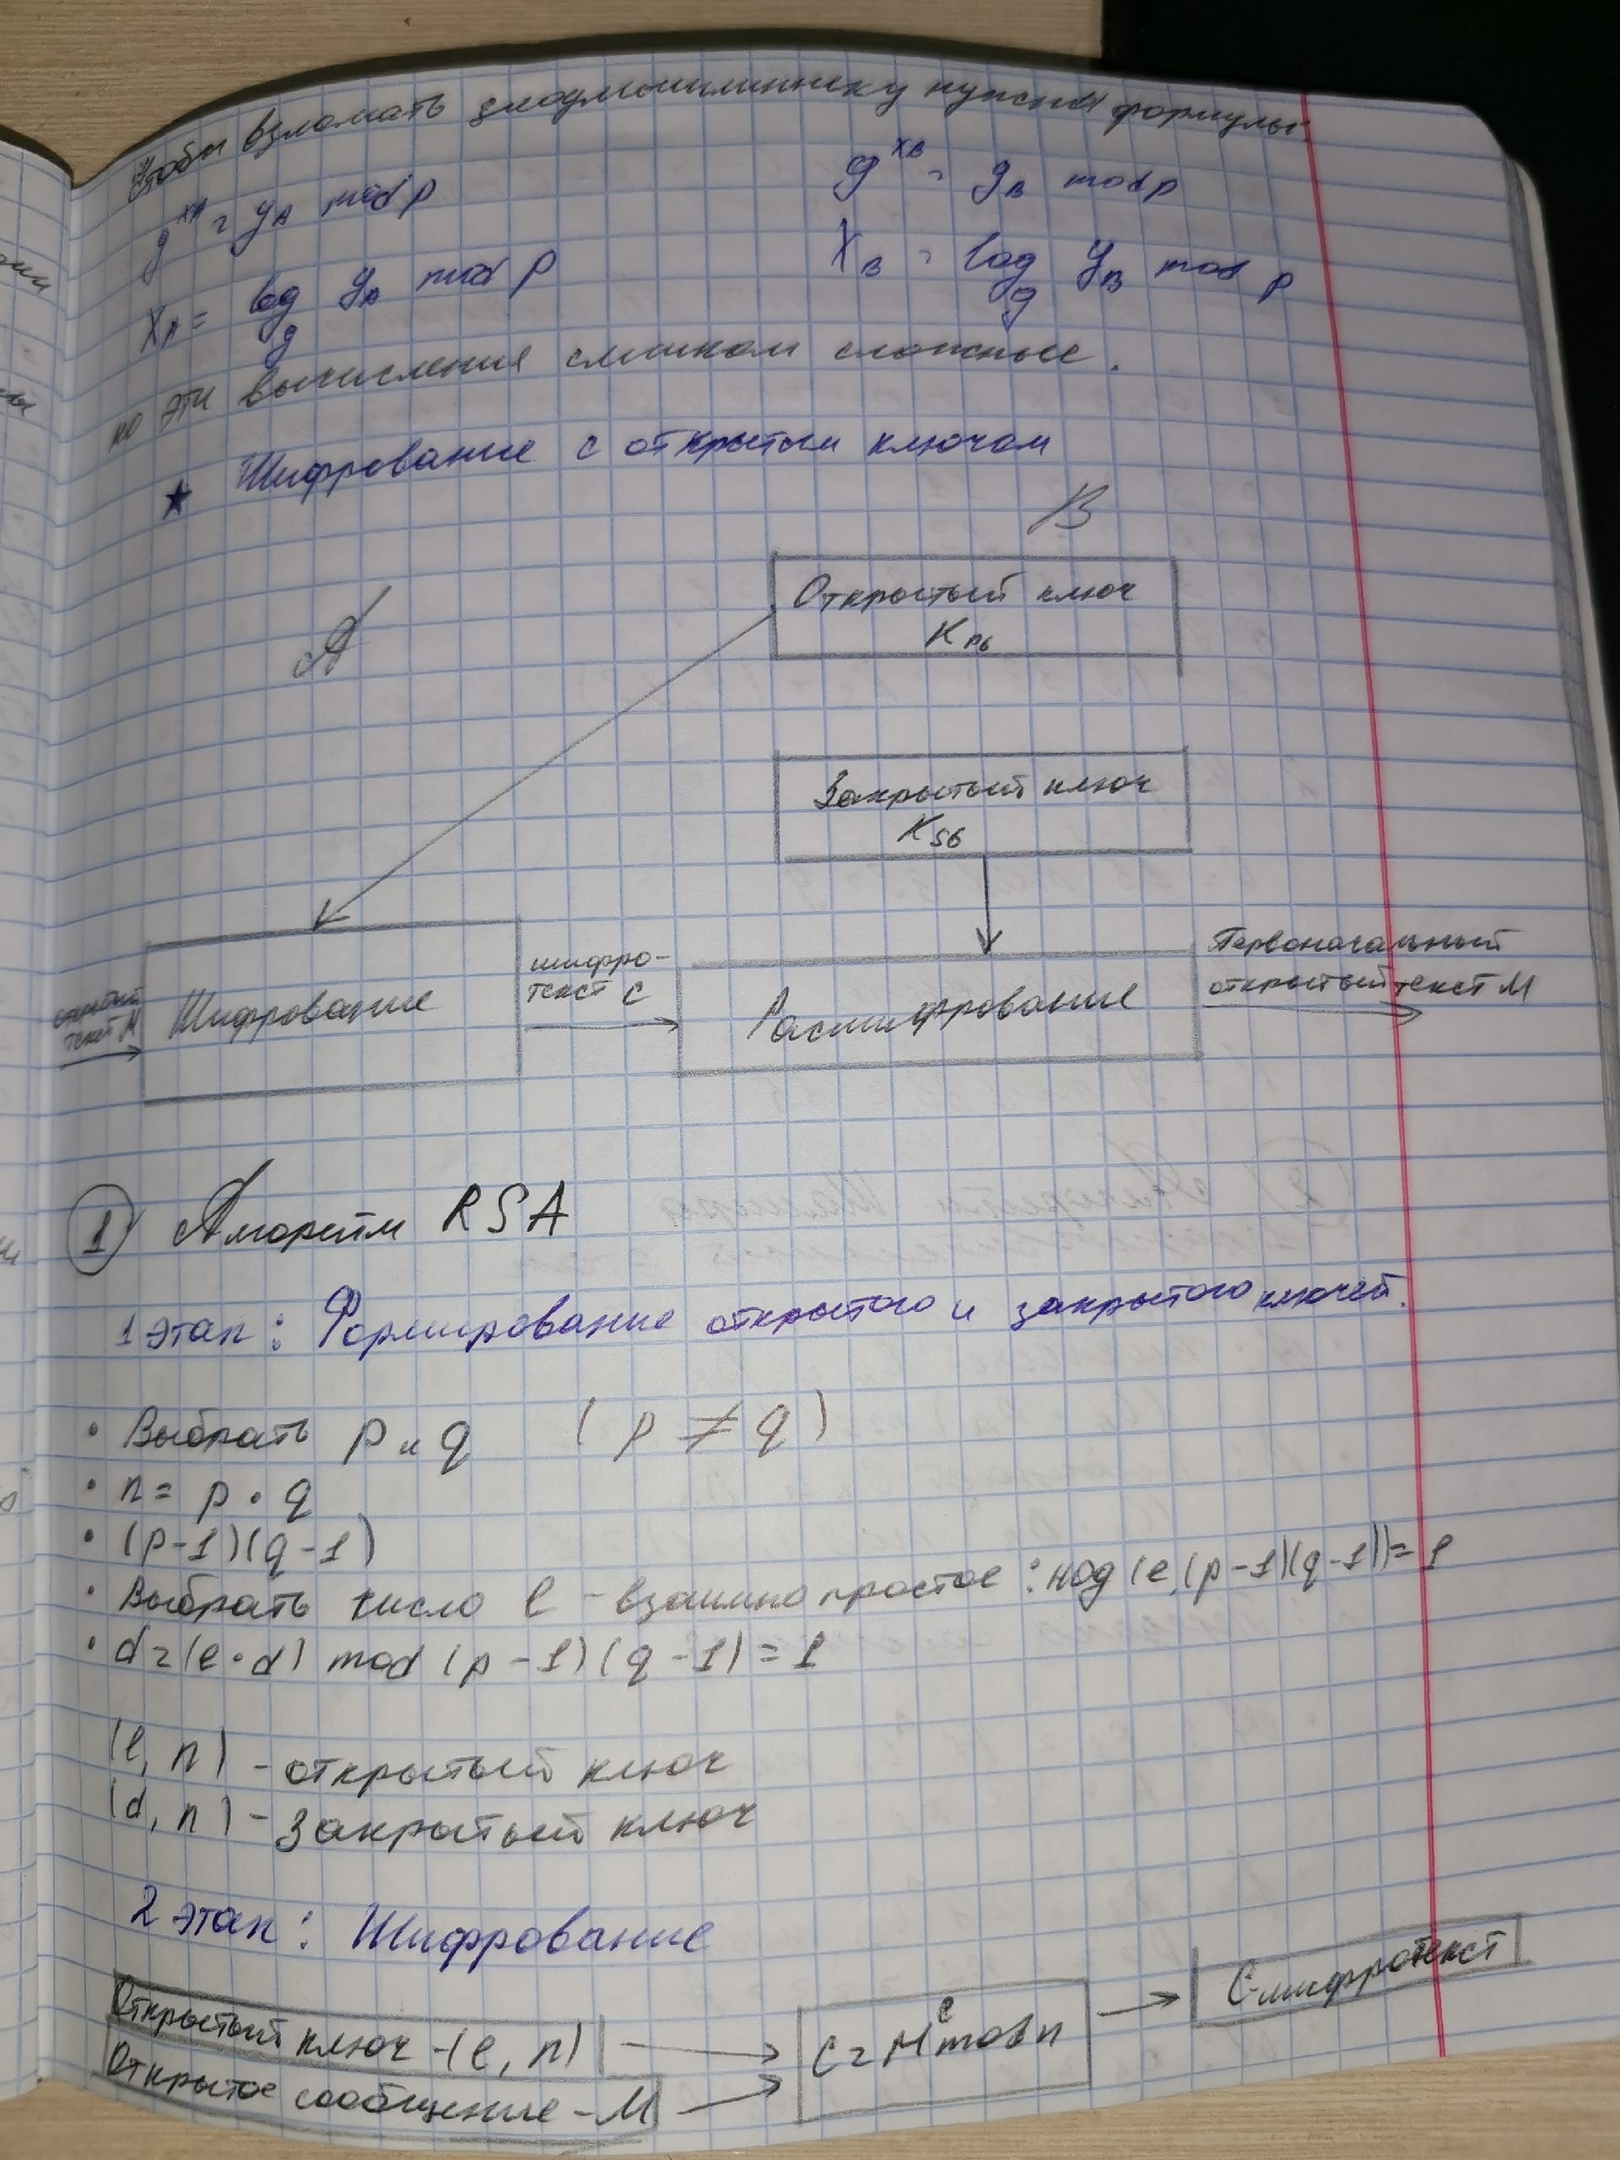 Чтобы взломать злоумышленнику нужны формулы
g^xA = yA mod p
g^xB = yB mod p
XA = log_g yA mod p
XB = log_g yB mod p
но эти вычисления слишком сложные.
★ Шифрование с открытым ключом
A
B
Открытый ключ
Kрб
Закрытый ключ
KSб
открытый
текст M
Шифрование
шифро-
текст C
Расшифрование
Первоначальный
открытый текст M
1 Алгоритм RSA
1 этап: Формирование открытого и закрытого ключей.
• Выбрать p и q (p ≠ q)
• n = p · q
• (p-1)(q-1)
• Выбрать число e - взаимно простое: нод(e,(p-1)(q-1))=1
• d=(e·d) mod (p-1)(q-1)=1
(e, n) - открытый ключ
(d, n) - закрытый ключ
2 этап: Шифрование
Открытый ключ -(e, n)
Открытое сообщение - M
C = M^e mod n
C-шифротекст